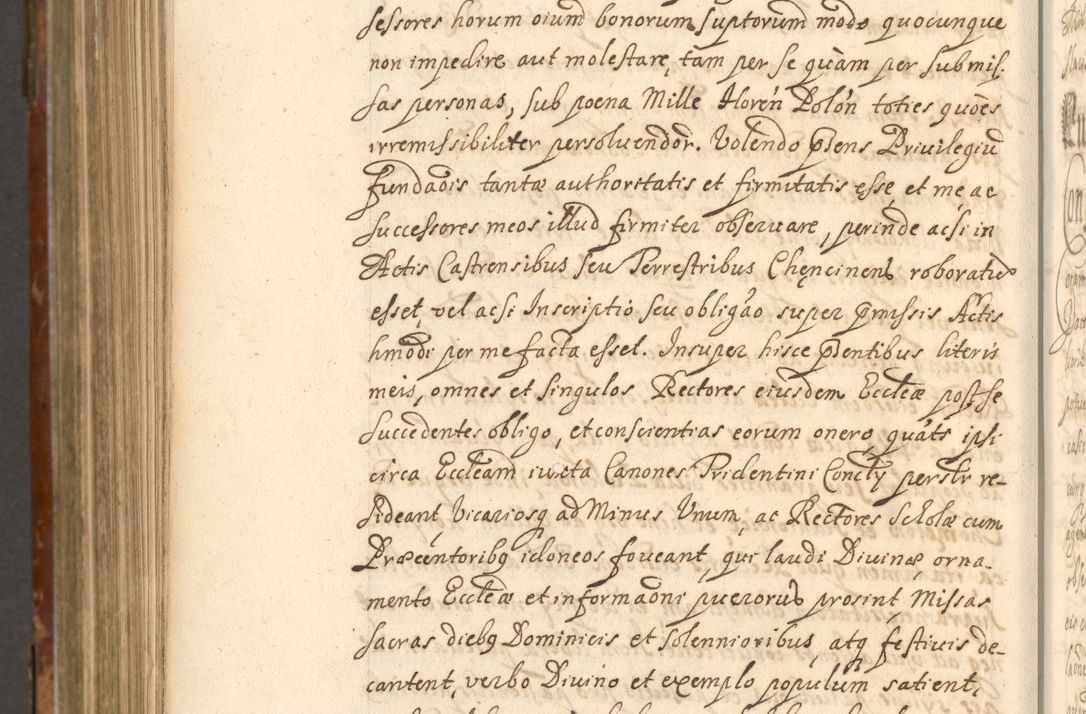 sessores horum oium bonorum suptorum modo quocunque
non impedire aut molestare, tam per se quàm per submis.
sas personas, sub poena Mille Floren Polon toties quoẽs
irremissibiliter persoluendor. Volendo pñs Priuilegiũ
fundaõis tantæ authoritatis et firmitatis esse, et me ac
successores meos illud firmiter obseruare, perinde acsi in
Actis Castrensibus seu Terrestribus Chęncinens roboratũ
esset, vel acsi Inscriptio seu obligao super pmissis Actis
hmõdi per me facta esset. Insuper hisce pñtibus literis
meis, omnes et singulos Rectores eiusdem Eccleæ post se
succedentes obligo, et conscientias eorum onero, quáts ipsi
circa Eccleam iuxta Canones Tridentini Concly perslr re-
sideant Vicariosq ad Minus Unum, ac Rectores Scholæ cum
Præcentoribq idoneos foueant, qui laudi Divinæ, orna-
mento Eccleæ et informaõni puerorum prosint Missas
sacras diebq Dominicis et solennioribus, atq festiuis de-
cantent, verbo Divino et exemplo populum satient,